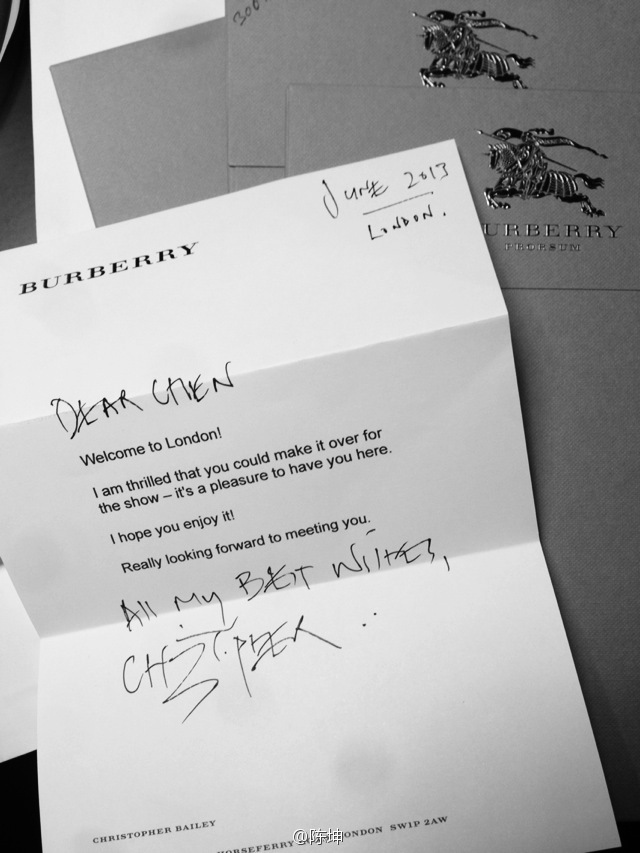 300
BURBERRY
PRORSUM
JUNE 2013
LONDON.
BURBERRY
DEAR CHEN
Welcome to London!
I am thrilled that you could make it over for
the show – it's a pleasure to have you here.
I hope you enjoy it!
Really looking forward to meeting you.
All My BEST WISHES,
CHRISTOPHER
CHRISTOPHER BAILEY
HORSEFERRY LONDON SW1P 2AW
@陈坤